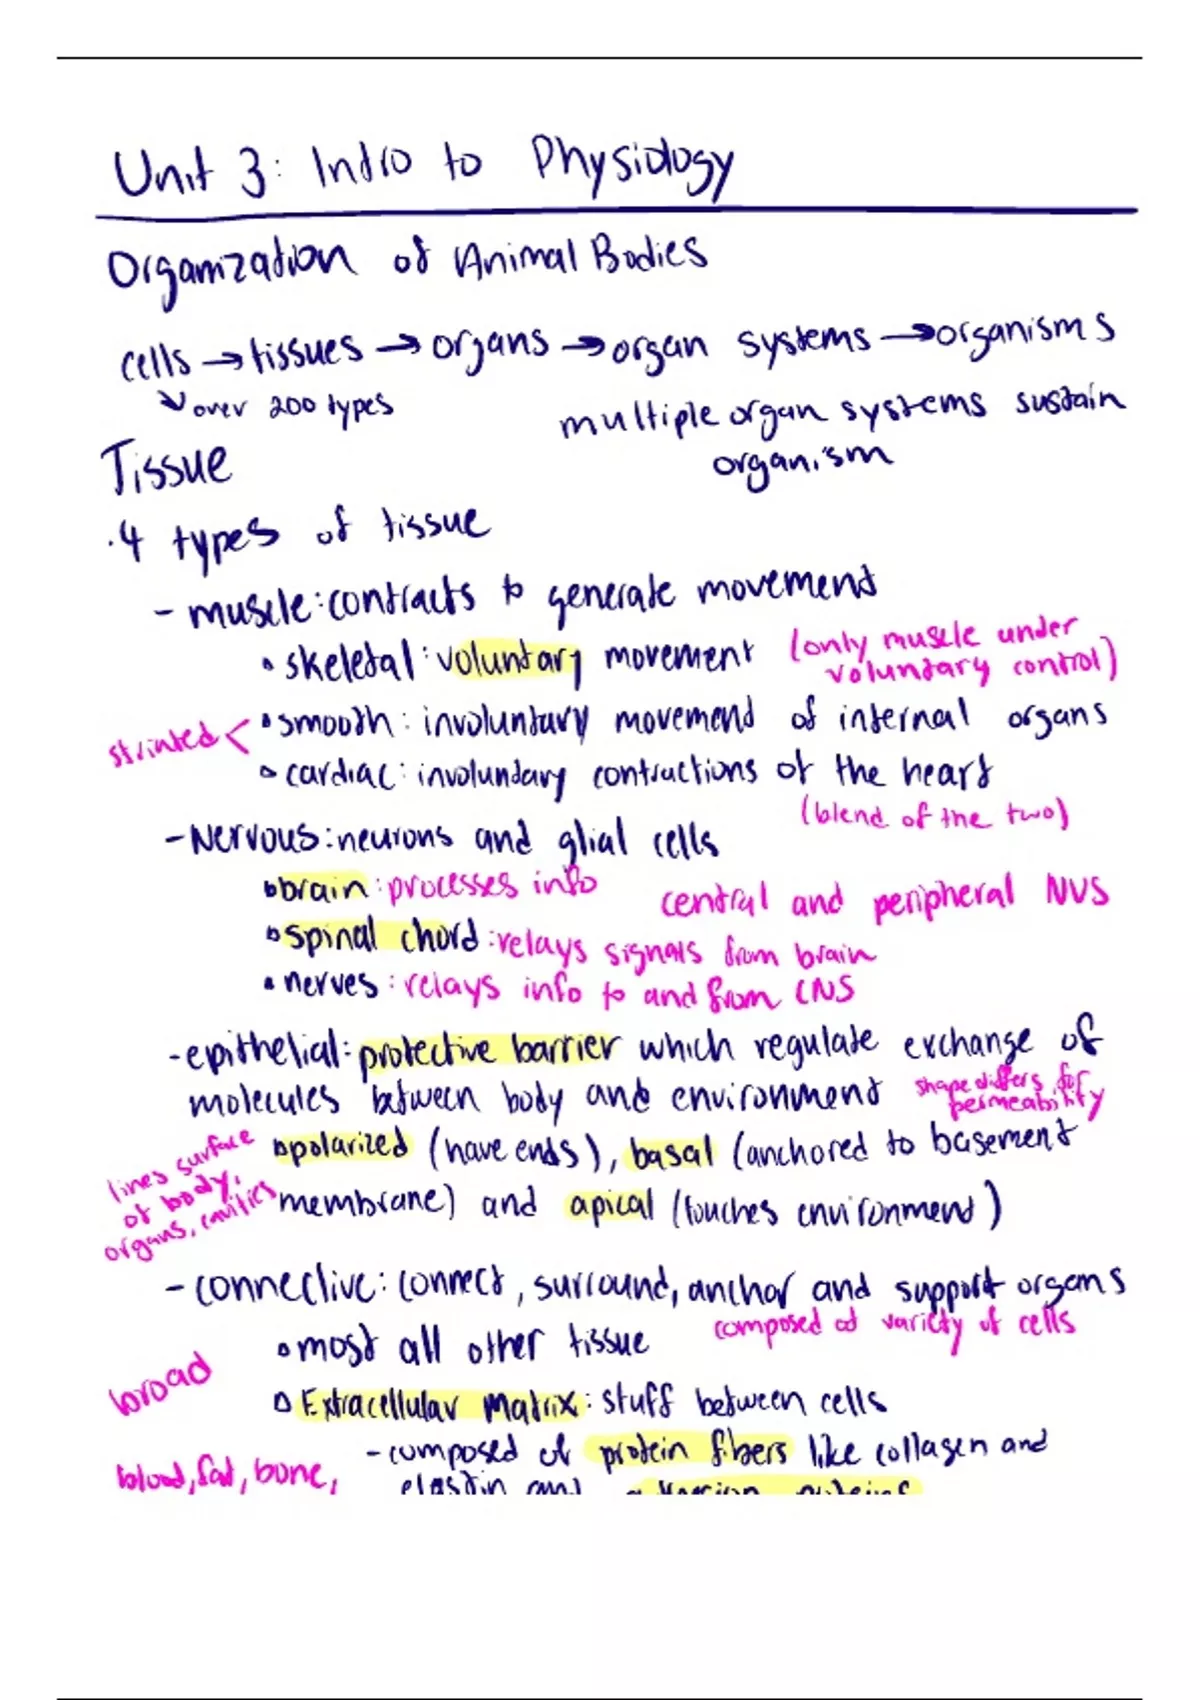 Unit 3: Intro to Physiology
Organization of Animal Bodies
cells → tissues → organs → organ systems → organisms
↘ over 200 types
multiple organ systems sustain
organism
Tissue
·4 types of tissue
- muscle: contracts to generate movement
• skeletal: voluntary movement (only muscle under
voluntary control)
striated < • smooth: involuntary movement of internal organs
• cardiac: involuntary contractions of the heart
(blend of the two)
- Nervous: neurons and glial cells
• brain: processes info
central and peripheral NVS
• spinal chord: relays signals from brain
• nerves: relays info to and from CNS
- epithelial: protective barrier which regulate exchange of
molecules between body and environment
shape differs for
permeability
• polarized (have ends), basal (anchored to basement
membrane) and apical (touches environment)
lines surface
of body,
organs, cavities
- connective: connect, surround, anchor and support organs
composed of variety of cells
• most all other tissue
broad
• Extracellular Matrix: stuff between cells
- composed of protein fibers like collagen and
blood, fat, bone,
elastin and adhesion proteins